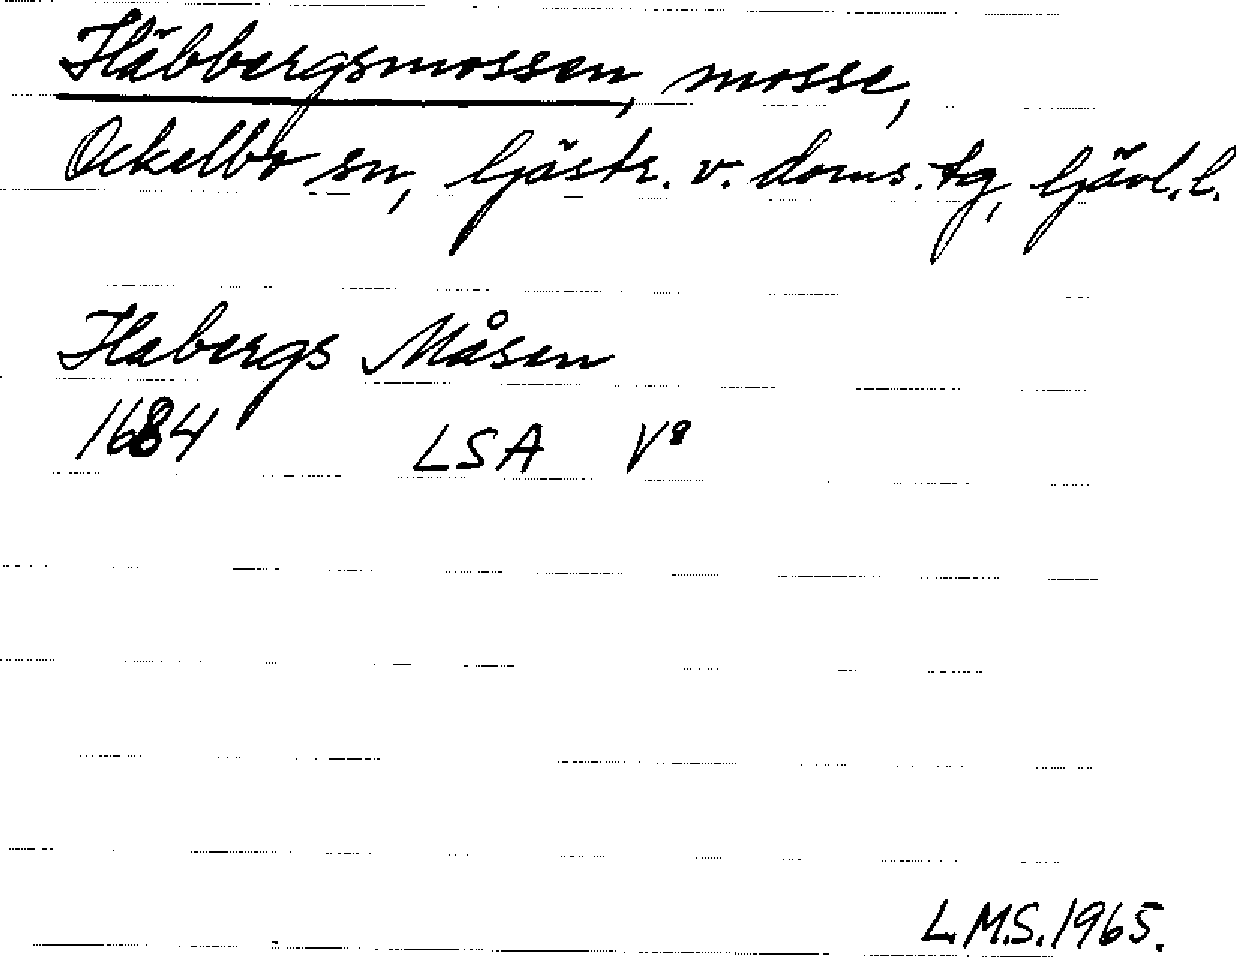 Häbbergsmossen, mosse,
Ockelbo sn, Gästr. v. doms. tg, Gävl. l.
Habergs Måsen
1684 LSA V⁸
L.M.S. 1965.